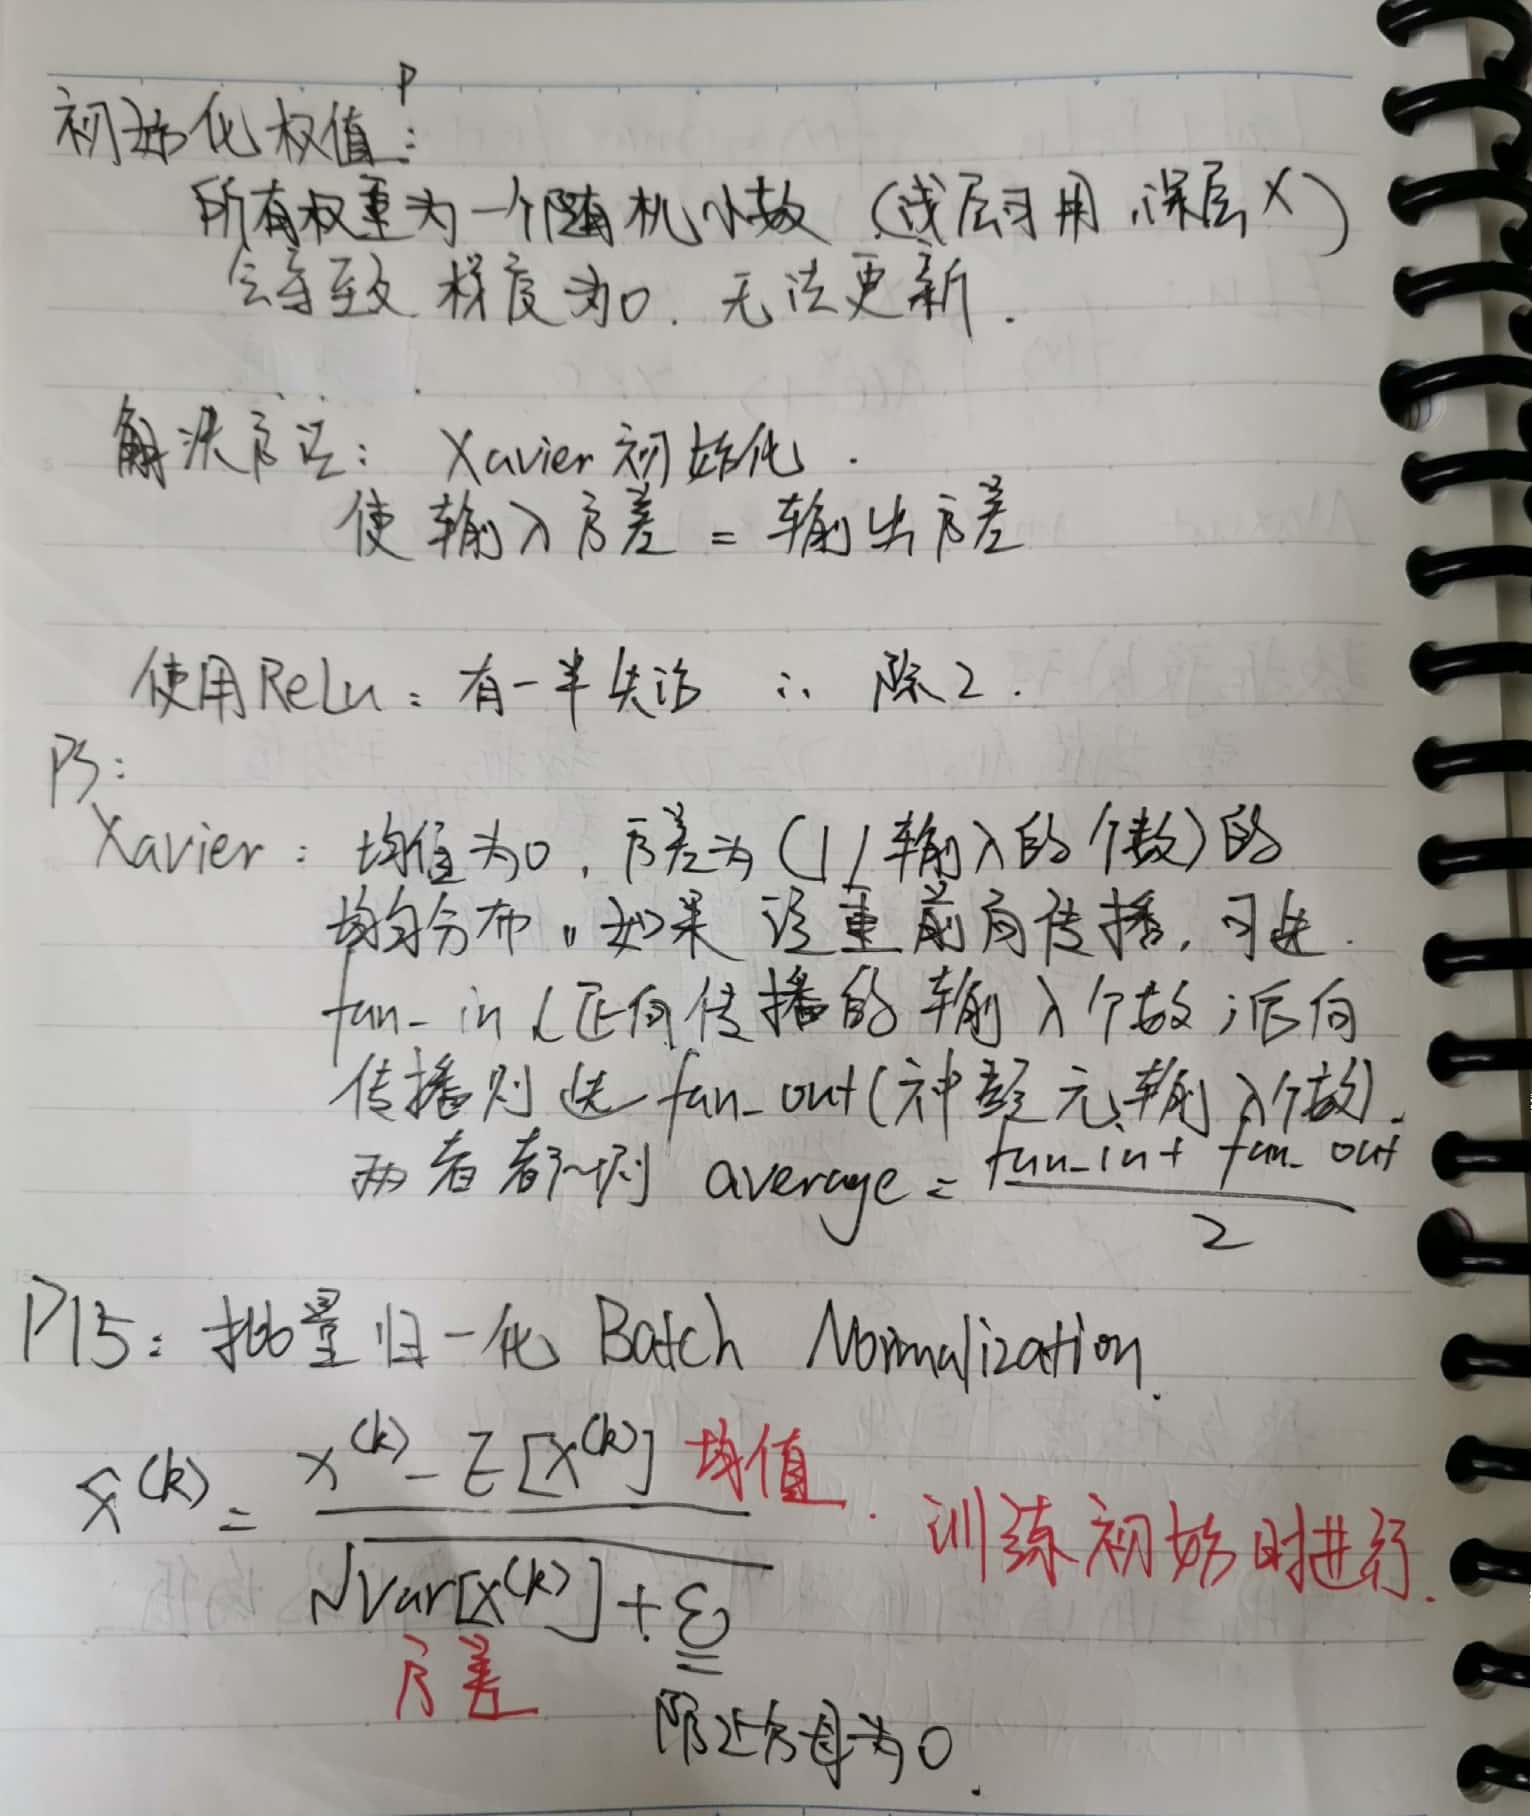 P
初始化权值:
所有权重为一个随机小数（浅层可用，深层X）
会导致梯度为0. 无法更新.
解决方法: Xavier初始化.
使输入方差 = 输出方差
使用ReLu: 有一半失活 ∴ 除2.
P3:
Xavier: 均值为0, 方差为(1/输入的个数)的
均匀分布。如果注重前向传播, 可选
fan_in (正向传播的输入个数; 后向
传播则选fan_out(神经元输入个数).
两者都 average = (fan_in + fan_out)/2
P15: 批量归一化 Batch Normalization.
x̂^(k) = (x^(k) - E[x^(k)]) / √(Var[x^(k)] + ε) 均值. 训练初始时进行.
方差
防止分母为0.